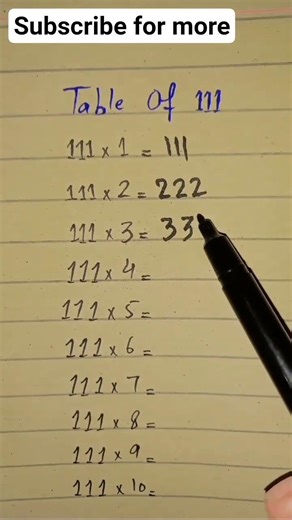 Subscribe for more
Table Of 111
111 x 1 = 111
111 x 2 = 222
111 x 3 = 33
111 x 4 =
111 x 5 =
111 x 6 =
111 x 7 =
111 x 8 =
111 x 9 =
111 x 10 =